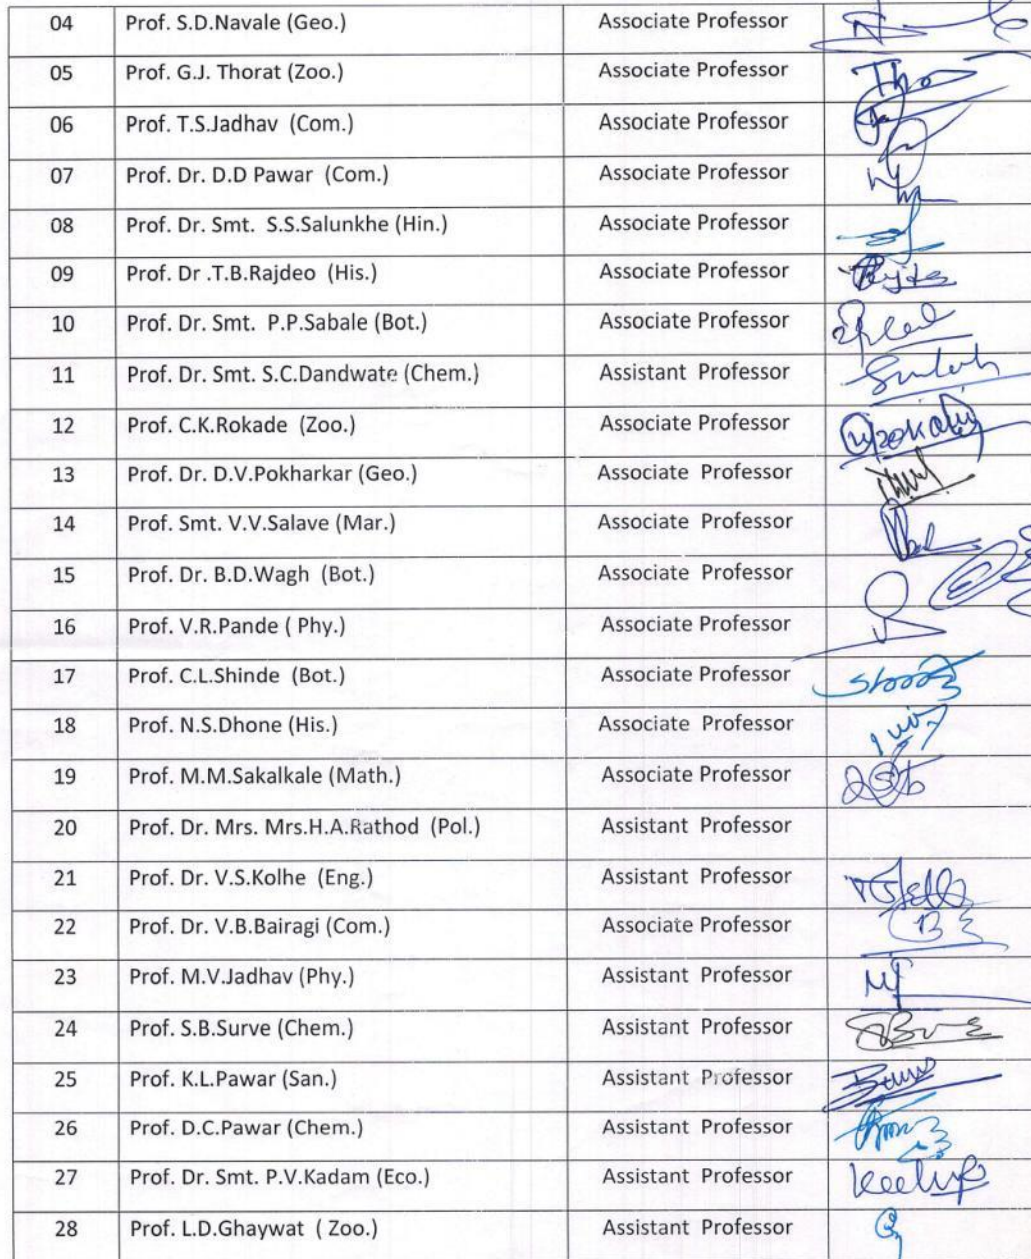 04 Prof. S.D.Navale (Geo.) Associate Professor
05 Prof. G.J. Thorat (Zoo.) Associate Professor
06 Prof. T.S.Jadhav (Com.) Associate Professor
07 Prof. Dr. D.D Pawar (Com.) Associate Professor
08 Prof. Dr. Smt. S.S.Salunkhe (Hin.) Associate Professor
09 Prof. Dr .T.B.Rajdeo (His.) Associate Professor
10 Prof. Dr. Smt. P.P.Sabale (Bot.) Associate Professor
11 Prof. Dr. Smt. S.C.Dandwate (Chem.) Assistant Professor
12 Prof. C.K.Rokade (Zoo.) Associate Professor
13 Prof. Dr. D.V.Pokharkar (Geo.) Associate Professor
14 Prof. Smt. V.V.Salave (Mar.) Associate Professor
15 Prof. Dr. B.D.Wagh (Bot.) Associate Professor
16 Prof. V.R.Pande ( Phy.) Associate Professor
17 Prof. C.L.Shinde (Bot.) Associate Professor
18 Prof. N.S.Dhone (His.) Associate Professor
19 Prof. M.M.Sakalkale (Math.) Associate Professor
20 Prof. Dr. Mrs. Mrs.H.A.Rathod (Pol.) Assistant Professor
21 Prof. Dr. V.S.Kolhe (Eng.) Assistant Professor
22 Prof. Dr. V.B.Bairagi (Com.) Associate Professor
23 Prof. M.V.Jadhav (Phy.) Assistant Professor
24 Prof. S.B.Surve (Chem.) Assistant Professor
25 Prof. K.L.Pawar (San.) Assistant Professor
26 Prof. D.C.Pawar (Chem.) Assistant Professor
27 Prof. Dr. Smt. P.V.Kadam (Eco.) Assistant Professor
28 Prof. L.D.Ghaywat ( Zoo.) Assistant Professor